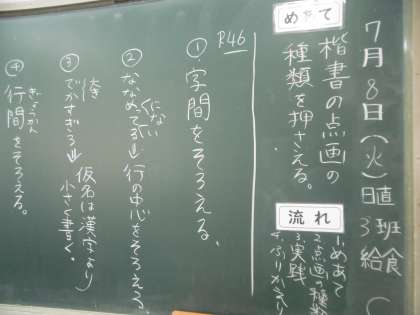 7月8日(火)
日直
3班
給食
めあて
楷書の点画の
種類を押さえる。
流れ
1.めあて
2.点画の種類
3.実践
4.ふりかえり
P.46
①字間をそろえる。
②ななめってる⇒行の中心をそろえる。
にない
③でかすぎる⇒仮名は漢字より
小さく書く。
④行間をそろえる。
ぎょうかん